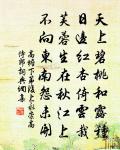 天上碧桃和露種
日邊紅杏倚雲栽
芙蓉生在秋江上
不向東風怨未開
高蟾下第後上永崇高
侍郎 詩與網集